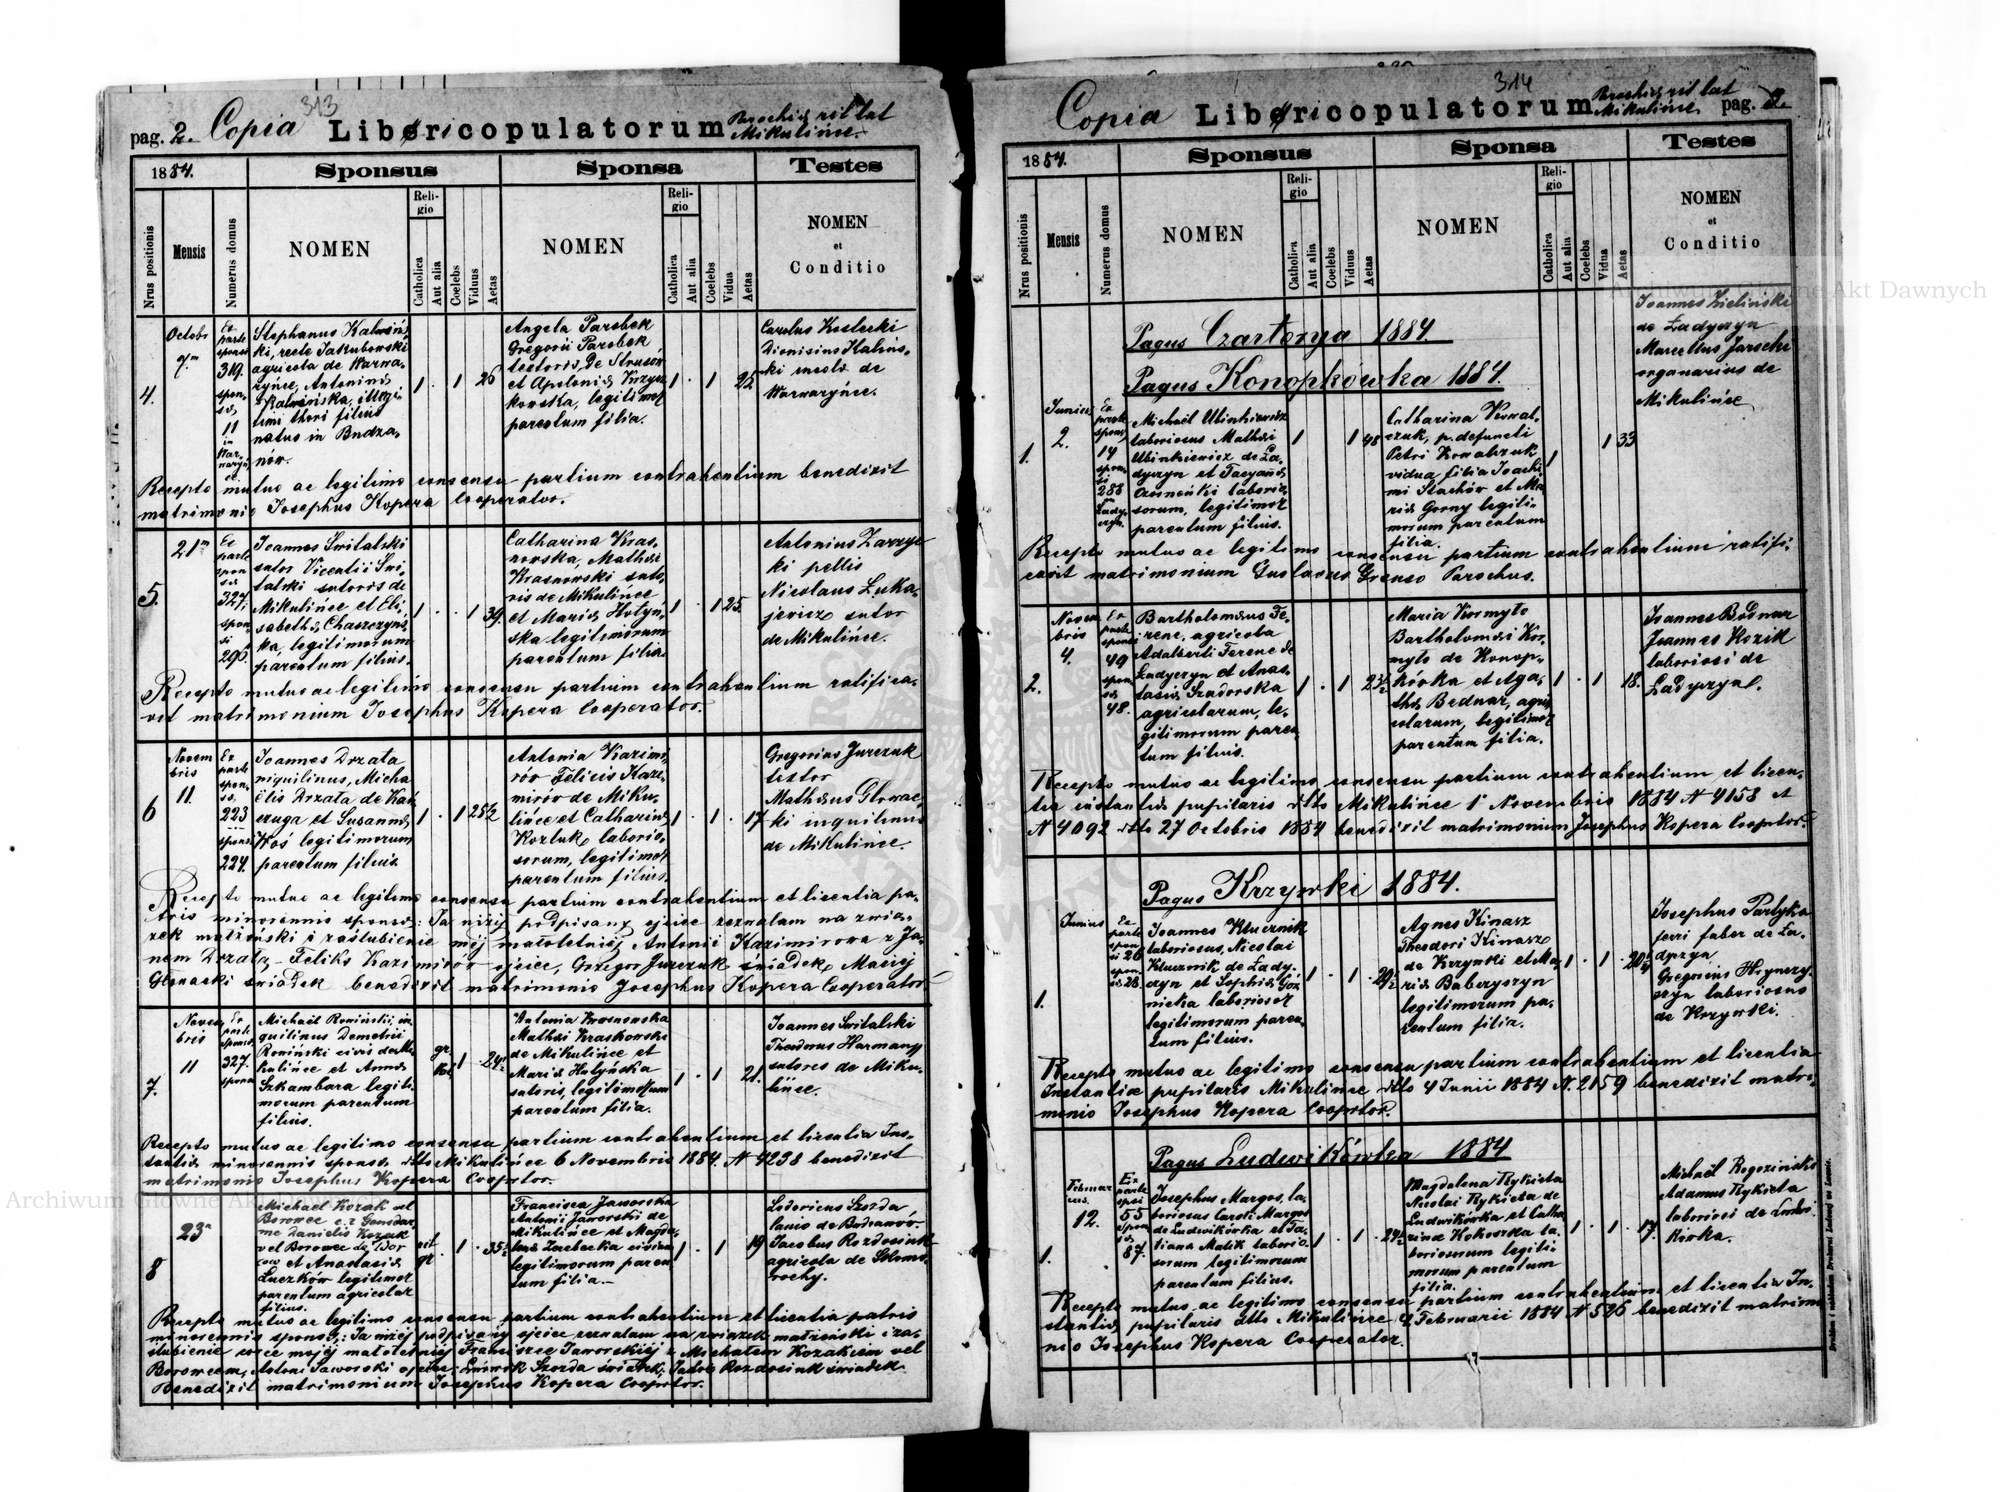 313
pag. 2. Copia Libri copulatorum Parochiæ rit lat
Mikulińce.
1884. Sponsus Sponsa Testes
Nrus positionis Mensis Numerus domus NOMEN Religio Catholica Aut alia Coelebs Viduus Aetas NOMEN Religio Catholica Aut alia Coelebs Vidua Aetas NOMEN et Conditio
4. Octobr 7m
Ex parte sponsi 319. sponsæ 11 in
Stephanus
ki, recte Jakubowski
agricola de Warwa-
ryńce, Antoninæ
illegi-
timi thori filius
natus in Budza-
nów.
1 1 26
Angela Parobek
Gregorii Parobek
textoris de Strusów
et Apoloniæ Krzyż
kowska, legitimor
parentum filia.
1 1 22
Carolus Kostecki
Dionisius Kalins-
ki de
Warwaryńce.
Recepto mutuo ac legitimo consensu partium contrahentium benedixit
matrimonio Josephus Kopera Cooperator.
5. 21m
Ex parte sponsæ 327. sponsi 296.
Joannes Switalski
sutor Vicentii Swi-
talski sutoris de
Mikulińce et Eli-
sabethæ Chaszczyns-
ka, legitimorum
parentum filius.
1 1 39
Catharina Kras-
nowska, Mathæi
Krasnowski suto-
ris de Mikulińce
et Mariæ Hotyn-
ska legitimorum
parentum filia
1 1 25.
Antonius Zarzyc
ki pellio
Nicolaus Łuka-
jewicz sutor
de Mikulińce.
Recepto mutuo ac legitimo consensu partium contrahentium ratifica-
vit matrimonium Josephus Kopera Cooperator.
6 Novembris 11.
Ex parte sponsæ 223 sponsi 224.
Joannes Drzata
inquilinus, Micha
ëlis Drzata de
et Susannæ
Woś legitimorum
parentum filius
1 1 25½
Antonia Kazimi-
rów Felicis Kazi-
mirów de Miku-
lińce et Catharinæ
Kozluk laborio-
sorum, legitimor
parentum filius.
1 1 17
Gregorius Jurczuk
textor
Mathæus Głowac
ki inquilinus
de Mikulińce.
Recepto mutuo ac legitimo consensu partium contrahentium et licentia pa-
tris minorennis sponsæ: Ja niżej podpisany ojciec zeznałam na zwią-
zek małżeński i zaślubienie mej małoletniej Antonii Kazimirowa z Ja-
nem Drzata – Feliks Kazimirów ojciec, Grzegor Jurczuk świadek Maciej
Głowacki świadek benedixit matrimonio Josephus Kopera Cooperator
7. Novembris 11
Ex parte sponsæ 327.
Michaël Rowiński, in
quilinus Demetrii
Rowiński civis de Mi
kulińce et Annæ
Szkambara legiti-
morum parentum
filius.
gr kat. 1 24½
Antonia Krasnowska
Mathæi Kraskowski
de Mikulińce et
Mariæ Hotyńska
sutoris, legitimorum
parentum filia.
1 1 21.
Joannes Switalski
Theodorus Harmanyj
sutores de Miku-
lińce.
Recepto mutuo ac legitimo consensu partium contrahentium et licentia Ins-
tantiæ minorennis sponsæ ddto Mikulińce 6 Novembris 1884. N 4238 benedixit
matrimonio Josephus Kopera Cooprtor.
8 23a
Michaël Kozak vel
Borowec
Danielis Kozak
vel Borowec de Bor
et Anastasiæ
Łuczków legitimor
parentum agricolar
filius.
rit gr 1 35½
Francisca Jaworska
Antonii Jaworski de
Mikulińce et Magda-
lenæ Zarebecka civium
legitimorum paren
tum filia. –
1 1 19
Ludovicus Szozda
lanio de Budzanów.
Jacobus Rozdosiuk
agricola de
Recepto mutuo ac legitimo consensu partium contrahentium et licentia patris
minorennis sponsæ: Ja niżej podpisany ojciec zeznałam na związek małżeński i za-
ślubienie córce mojej małoletniej Franciszce Jaworskiej z Michałem Kozakiem vel
Borowcem, Antoni Jaworski ojciec, Ludwik Szozda świadek, Jakób Rozdosiuk świadek.
Benedixit matrimonium Josephus Kopera Cooprtor.
314
Copia Libri copulatorum Parochiæ rit lat
Mikulińce. pag. 3.
1884. Sponsus Sponsa Testes
Nrus positionis Mensis Numerus domus NOMEN Religio Catholica Aut alia Coelebs Viduus Aetas NOMEN Religio Catholica Aut alia Coelebs Vidua Aetas NOMEN et Conditio
Pagus Czartorya 1884.
Pagus Konopkówka 1884.
1. Junius 2.
Ex parte sponsæ 14 sponsi 288 Ladyczyn.
Michaël Ubinkiewicz
laboriosus Mathæi
Ubinkiewicz de La-
dyczyn et Tacyannæ
laborio-
sorum, legitimor
parentum filius.
1 1 48
Catharina Kowal-
czuk, p. defuncti
Petri Kowalczuk
vidua filia Joachi
mi Stachów et Ma
riæ Gorny legiti-
morum parentum
filia.
1 1 33
Joannes Zieliński
de Ładyczyn
Marcellus Jarecki
organarius de
Mikulińce
Recepto mutuo ac legitimo consensu partium contrahentium ratifi-
cavit matrimonium Gustavus Parochus.
2. Novembris 4.
Ex parte sponsi 49 sponsæ 48.
Bartholomæus Fe-
renc, agricola
Adalberti Ferenc de
Ladyczyn et Anas-
tasiæ Szadorska
agricolarum, le-
gitimorum paren
tum filius.
1 1 23½
Maria Kormyto
Bartholomæi Kor-
myto de Konop-
kówka et Aga-
thæ Bednar, agri
colarum, legitimor
parentum filia.
1 1 18.
Joannes Bodnar
Joannes Kozik
laboriosi de
Ładyczyn.
Recepto mutuo ac legitimo consensu partium contrahentium et licen-
tia instantiæ pupilaris ddto Mikulińce 1 Novembris 1884 N 4158 et
N 4092 ddto 27 Octobris 1884 benedixit matrimonium Josephus Kopera Cooprtor.
Pagus Krzywki 1884.
1. Junius
Ex parte sponsi 26 sponsæ 28.
Joannes Klucznik
laboriosus, Nicolai
Klucznik de Łady-
czyn et Sophiæ Goź
nicka laboriosor
legitimorum paren
tum filius.
1 1 20½
Agnes Kinasz
Theodori Kinasz
de Krzywki et Ma-
riæ Baberyszyn
legitimorum pa-
rentum filia.
1 1 20½
Josephus Partyka
ferri faber de Ła-
dyczyn
Gregorius Hrynczy-
szyn laboriosus
de Krzywki.
Recepto mutuo ac legitimo consensu partium contrahentium et licentia
Instantiæ pupilaris Mikulińce ddto 4 Junii 1884 N. 2159 benedixit matri-
monio Josephus Kopera Cooprtor.
Pagus Ludwikówka 1884
1. Februarius. 12.
Ex parte sponsi 55 sponsæ 87.
Josephus Margos, la-
boriosus Caroli Margos
de Ludwikówka et Ta-
tiana Malik laborio-
sorum legitimorum
parentum filius.
1 1 24½
Magdalena Kykieta
Nicolai Kykieta de
Ludwikówka et Catha
rinæ Kokoszka la-
boriosorum legiti-
morum parentum
filia.
1 1 17.
Michaël Rogoziński
Adamus Kykieta
laboriosi de Ludwi-
kówka.
Recepto mutuo ac legitimo consensu partium contrahentium et licentia In-
stantiæ pupilaris ddto Mikulińce 4 Februarii 1884 N 526 benedixit matrimo
nio Josephus Kopera Cooperator.
Archiwum Główne Akt Dawnych
Archiwum Główne Akt Dawnych